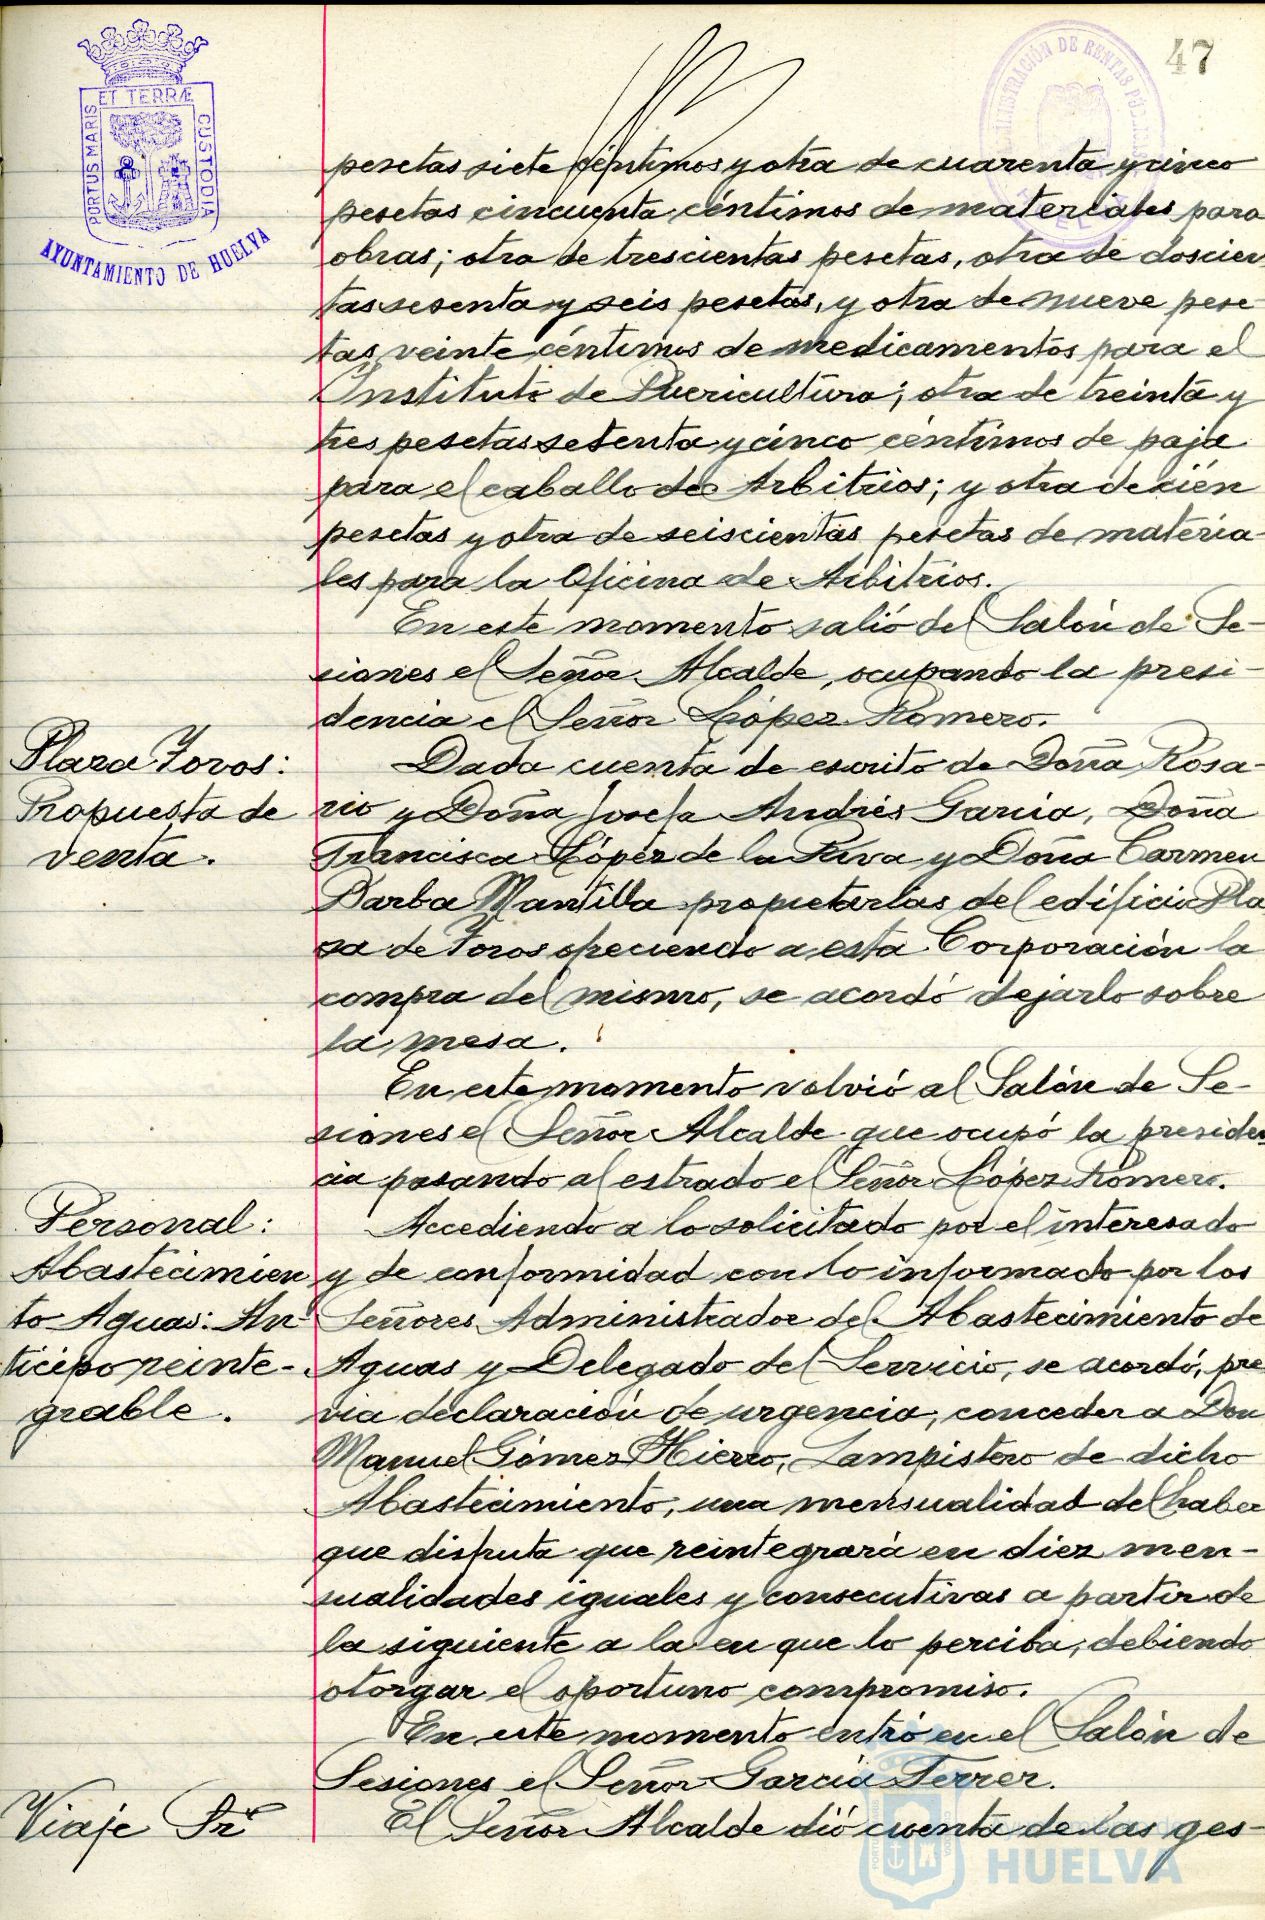 47
PORTUS MARIS ET TERRÆ CUSTODIA
AYUNTAMIENTO DE HUELVA
ADMINISTRACIÓN DE RENTAS PÚBLICAS
pesetas siete céntimos y otra de cuarenta y cinco
pesetas cincuenta céntimos de materiales para
obras; otra de trescientas pesetas, otra de doscien
tas sesenta y seis pesetas, y otra de nueve pese-
tas veinte céntimos de medicamentos para el
Instituto de Puericultura; otra de treinta y
tres pesetas setenta y cinco céntimos de paja
para el caballo de Arbitrios; y otra de cien
pesetas y otra de seiscientas pesetas de materia-
les para la Oficina de Arbitrios.
En este momento salió del Salón de Se-
siones el Señor Alcalde, ocupando la presi-
dencia el Señor López Romero.
Plaza Toros:
Propuesta de
venta.
Dada cuenta de escrito de Doña Rosa-
rio y Doña Josefa Andrés García, Doña
Francisca López de la Riva y Doña Carmen
Barba Mantilla propietarias del edificio Pla
za de Toros ofreciendo a esta Corporación la
compra del mismo, se acordó dejarlo sobre
la mesa.
En este momento volvió al Salón de Se-
siones el Señor Alcalde que ocupó la presiden
cia pasando al estrado el Señor López Romero.
Personal:
Abastecimien
to Aguas: An-
ticipo reinte-
grable.
Accediendo a lo solicitado por el interesado
y de conformidad con lo informado por los
Señores Administrador del Abastecimiento de
Aguas y Delegado del Servicio, se acordó, pre
via declaración de urgencia, conceder a Don
Manuel Gómez Hierro, Lampistero de dicho
Abastecimiento, una mensualidad del haber
que disfruta que reintegrará en diez men-
sualidades iguales y consecutivas a partir de
la siguiente a la en que lo perciba, debiendo
otorgar el oportuno compromiso.
En este momento entró en el Salón de
Sesiones el Señor García Ferrer.
Viaje Sr
El Señor Alcalde dió cuenta de las ges-
HUELVA